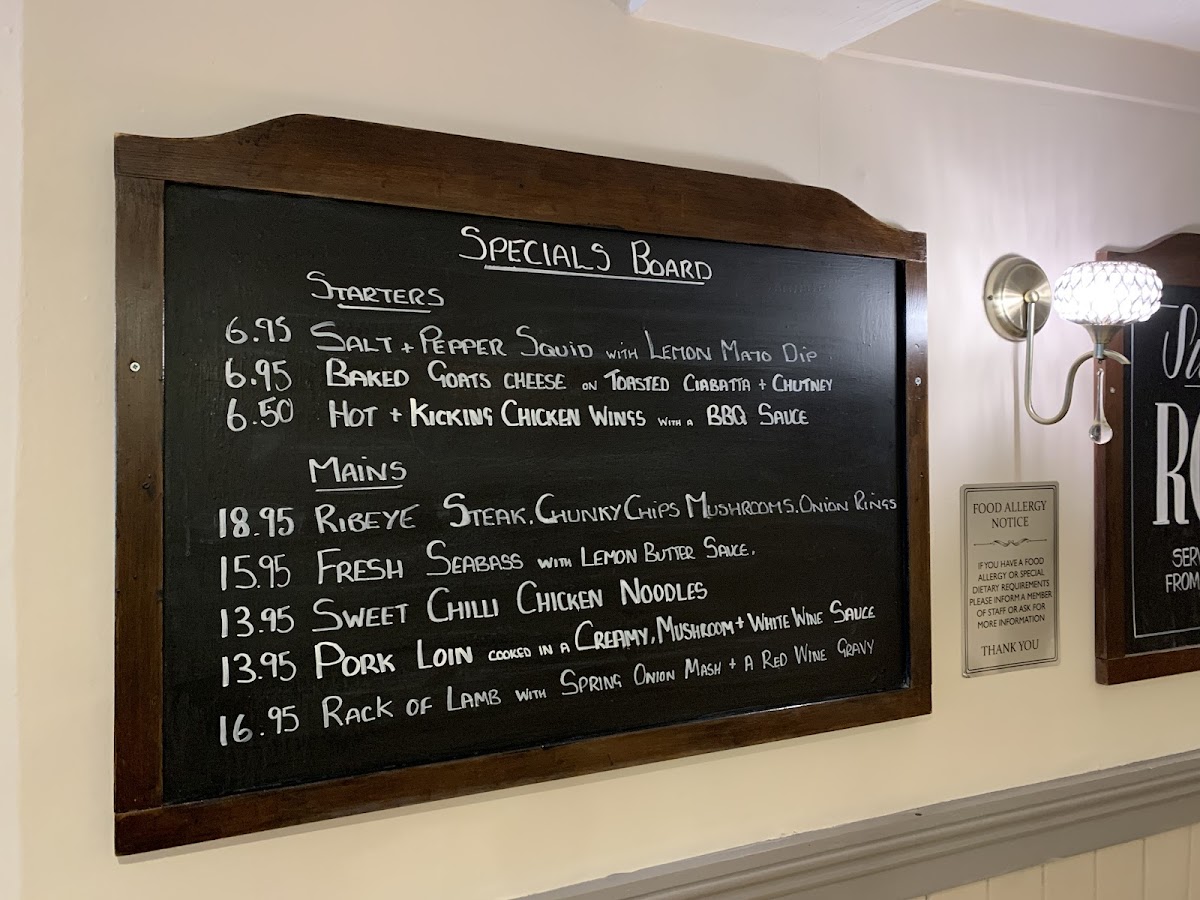 SPECIALS BOARD
STARTERS
6.95 SALT + PEPPER SQUID WITH LEMON MAYO DIP
6.95 BAKED GOATS CHEESE ON TOASTED CIABATTA + CHUTNEY
6.50 HOT + KICKING CHICKEN WINGS WITH A BBQ SAUCE
MAINS
18.95 RIBEYE STEAK. CHUNKY CHIPS MUSHROOMS. ONION RINGS
15.95 FRESH SEABASS WITH LEMON BUTTER SAUCE.
13.95 SWEET CHILLI CHICKEN NOODLES
13.95 PORK LOIN COOKED IN A CREAMY, MUSHROOM + WHITE WINE SAUCE
16.95 RACK OF LAMB WITH SPRING ONION MASH + A RED WINE GRAVY
FOOD ALLERGY
NOTICE
IF YOU HAVE A FOOD
ALLERGY OR SPECIAL
DIETARY REQUIREMENTS
PLEASE INFORM A MEMBER
OF STAFF OR ASK FOR
MORE INFORMATION
THANK YOU
FROM